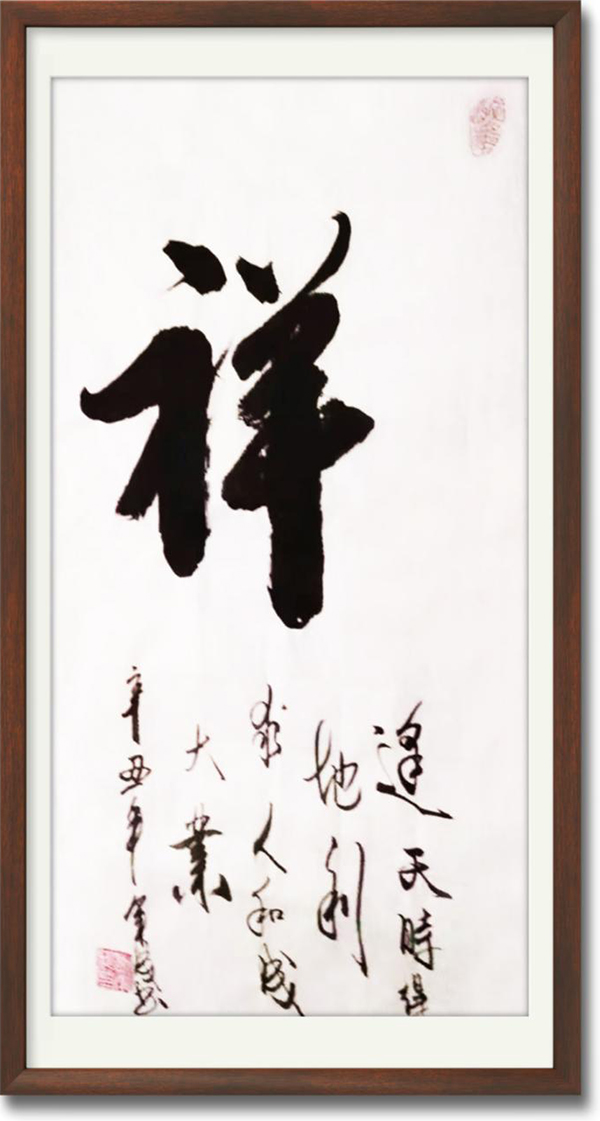 祥
逢天時得
地利
人和成
大業
辛丑年